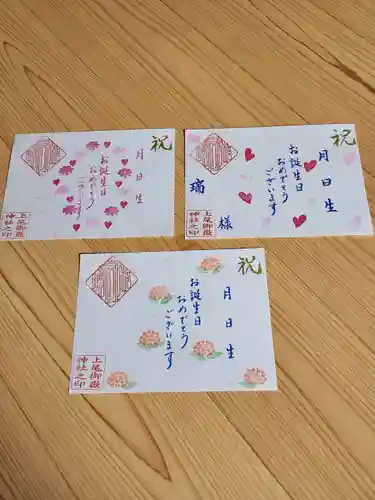 祝
月 日 生
お誕生日
おめでとう
ございます
上尾御嶽
神社之印
祝
月 日 生
お誕生日
おめでとう
ございます
瑞 様
上尾御嶽
神社之印
祝
月 日 生
お誕生日
おめでとう
ございます
上尾御嶽
神社之印